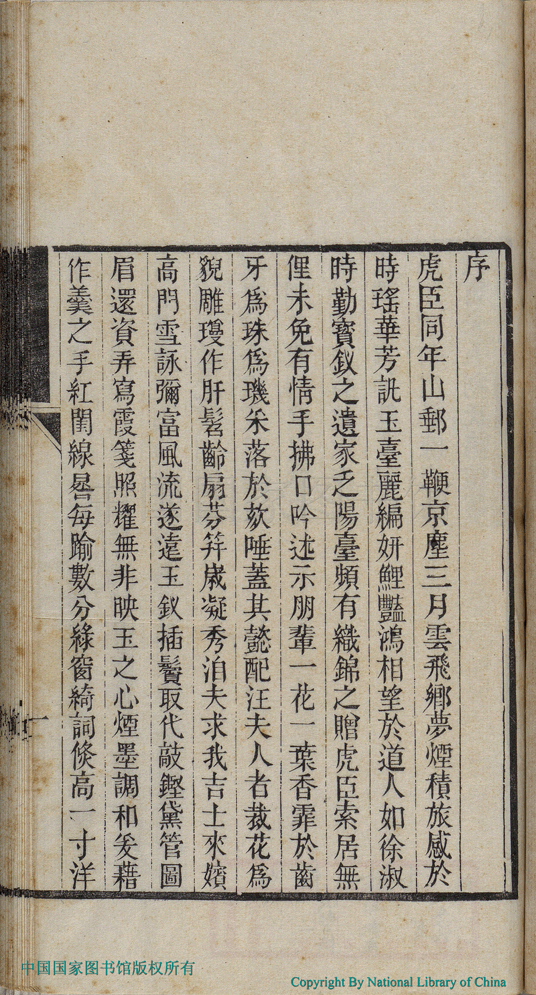 序
虎臣同年山郵一鞭京塵三月雲飛鄉夢煙積旅感於
時瑤華芳訊玉臺麗編妍鯉豔鴻相望於道人如徐淑
時勤寶釵之遺家乏陽臺頻有織錦之贈虎臣索居無
俚未免有情手拂口吟述示朋輩一花一葉香霏於齒
牙為珠為璣采落於欬唾蓋其懿配汪夫人者裁花為
貌雕瓊作肝髫齡扇芬笄歲凝秀洎夫求我吉士來嬪
高門雪詠彌富風流遂遠玉釵插鬢取代敲鏗黛管圖
眉還資弄寫霞箋照耀無非映玉之心煙墨調和爰藉
作羹之手紅閨線晷每踰數分綠窗綺詞倏高一寸洋
一
中国国家图书馆版权所有
Copyright By National Library of China